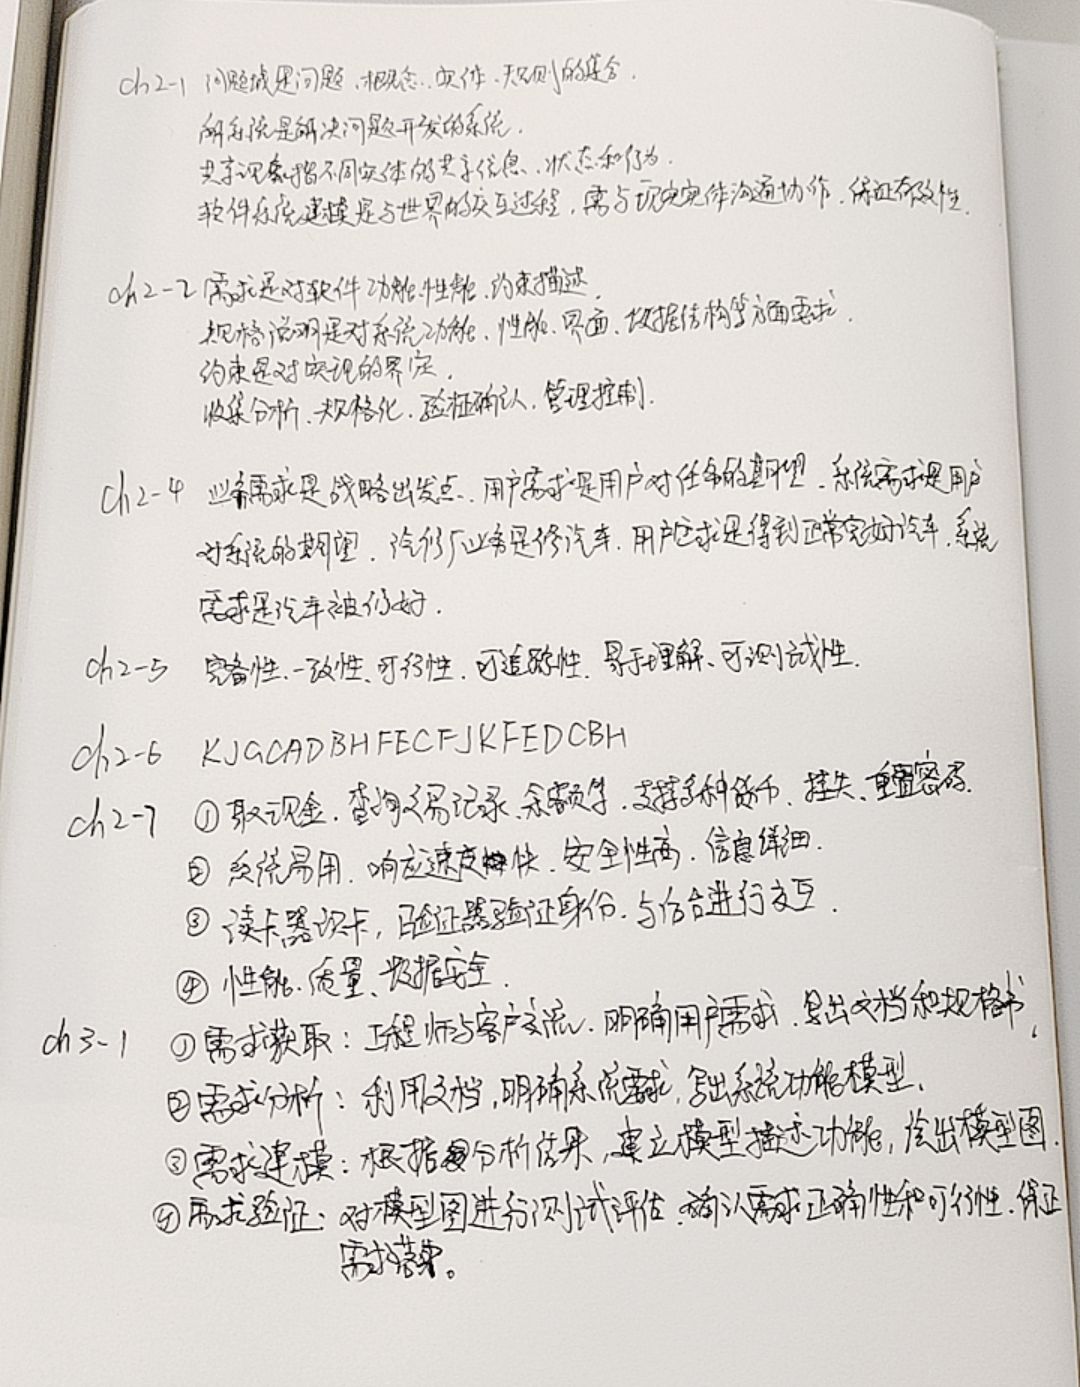 ch2-1 问题域是问题、概念、实体、规则的集合.
解系统是解决问题开发的系统.
共享现象指不同实体的共享信息、状态和行为.
软件系统建模是与世界的交互过程,需与现实实体沟通协作,保证有效性.
ch2-2 需求是对软件功能、性能、约束描述.
规格说明是对系统功能、性能、界面、数据结构等方面要求.
约束是对实现的界定.
收集分析、规格化、验证确认、管理控制.
ch2-4 业务需求是战略出发点、用户需求是用户对任务的期望、系统需求是用户
对系统的期望。汽修厂业务是修汽车,用户需求是得到正常完好汽车,系统
需求是汽车被修好.
ch2-5 完备性、一致性、可行性、可追踪性、易于理解、可测试性.
ch2-6 KJGCADBHFECFJKFEDCBH
ch2-7 ①取现金、查询交易记录、余额等、支持多种货币、挂失、重置密码.
② 系统易用、响应速度快、安全性高、信息详细.
③ 读卡器识卡,验证器验证身份,与后台进行交互.
④ 性能、质量、数据安全.
ch3-1 ①需求获取:工程师与客户交流,明确用户需求,写出文档和规格书,
②需求分析:利用文档,明确系统需求,写出系统功能模型.
③需求建模:根据分析结果,建立模型描述功能,绘出模型图.
④需求验证:对模型图进行测试评估,确认需求正确性和可行性,保证
需求